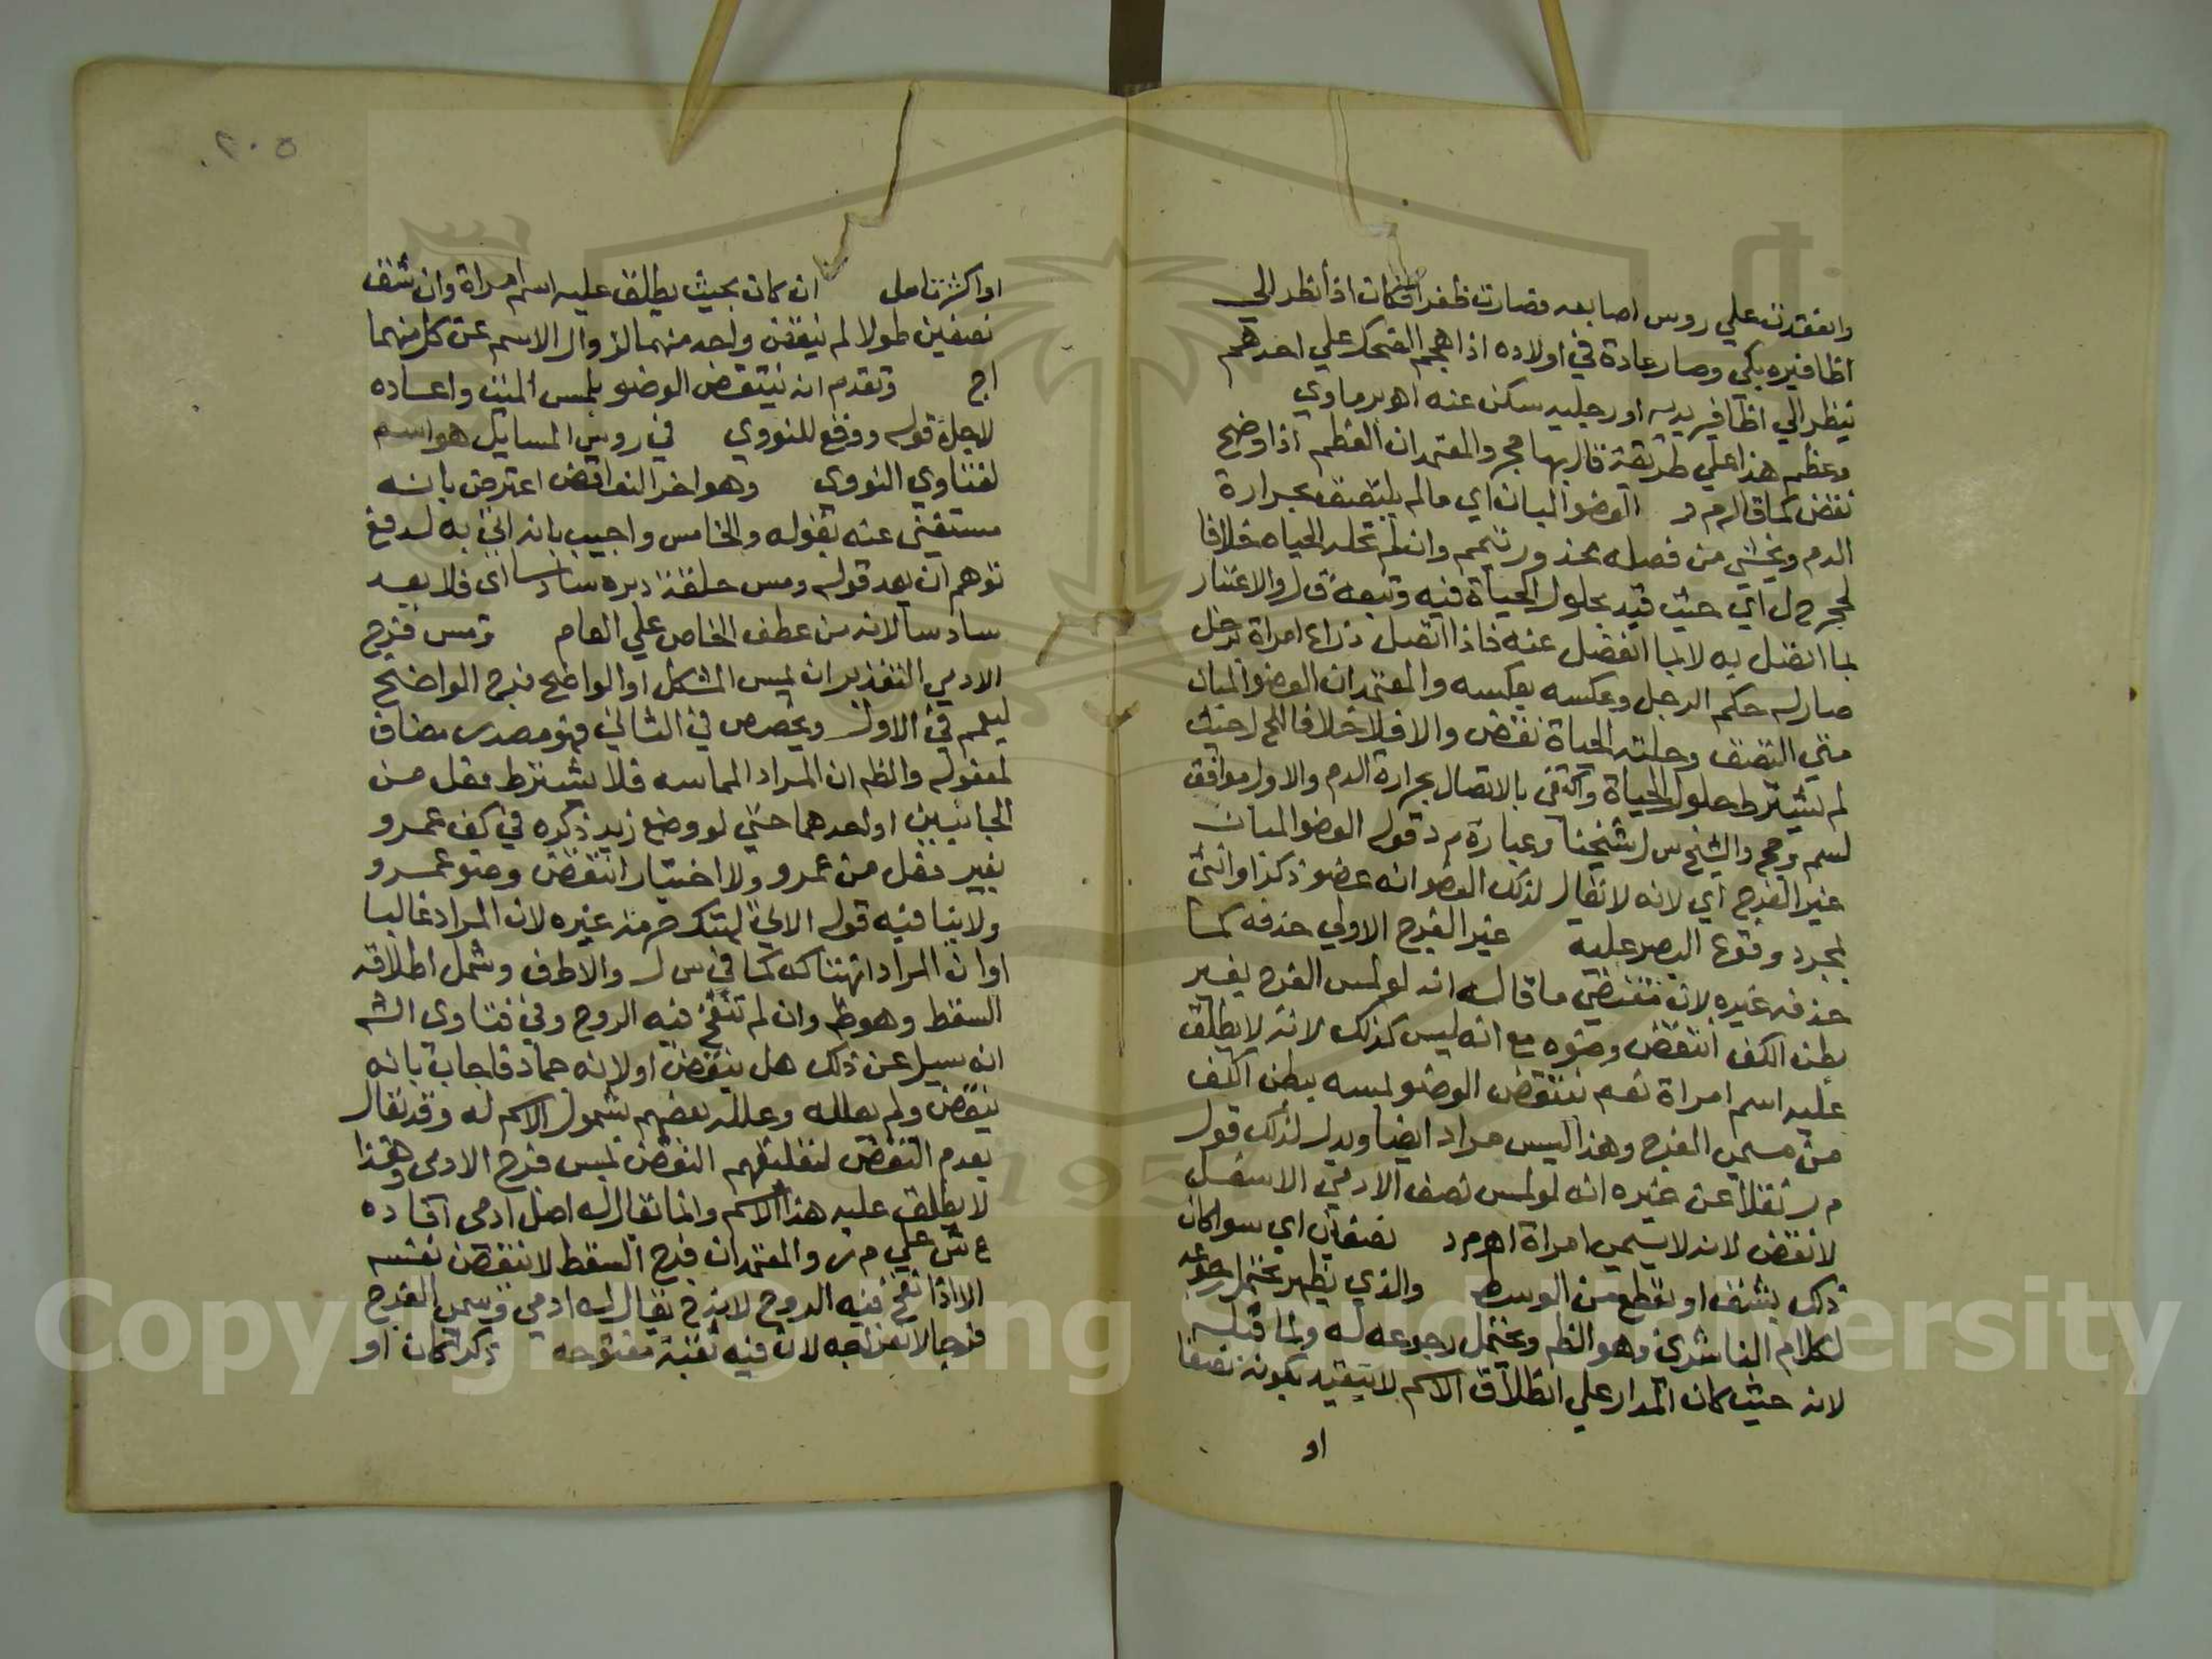 وانعقدت علي روس اصابعه فصارت ظفرا فكان اذا نظر الي
اظافيره بكي وصار عادة في اولاده اذا هجم الضحك علي احدهم
ينظر الي اظافير يديه او رجليه سكن عنه اهو برماوي
وعظم هذا علي طريقة قال بها حج والمعتمد ان العظم اذا وضح
نقض كما قاله م ر العضو المبان اي ما لم يلتصق بحرارة
الدم ويخشي من فصله محذور تيمم وان لم تحله الحياه خلافا
لحج ح ل اي حيث قيد بحلول الحياة فيه وتبعه ق ل والاعتبار
بما اتصل به لا بما انفصل عنه فاذا اتصل ذراع امراة برجل
صار له حكم الرجل وعكسه بعكسه والمعتمد ان العضو المبان
متي التصق وحلته الحياة نقض والا فلا خلافا لـ ح ل حيث
لم يشترط حلول الحياة واكتفي بالاتصال بحرارة الدم والاول موافق
لسم وحج والشيخ س ل شيخنا وعبارة م د قوله العضو المبان
غير الفرج اي لانه لا يقال لذلك العضو انه عضو ذكر او انثي
بمجرد وقوع البصر عليه غير الفرج الاولي حذفه كما
حذفه غيره لان مقتضي ما قاله انه لو لمس الفرج بغير
بطن الكف انتقض وضوه مع انه ليس كذلك لانه لا يطلق
عليه اسم امراة نعم ينتقض الوضو لمسه ببطن الكف
من مسمي الفرج وهذا ليس مراد ايضا ويدل لذلك قول
م ر نقلا عن غيره انه لو لمس نصف الادمي الاسفل
لا نقض لانه لا يسمي امراة اهو م د نصفان اي سوا كان
ذلك بشق او بقطع من الوسط والذي يظهر يحتمل رجوعه
لكلام الناشري وهو الظم ويحتمل رجوعه له ولما قبله
لانه حيث كان المدار علي اطلاق الاسم لا يتقيد بكونه نصفا
او
٢٠٥
او اكثر تامل ان كان بحيث يطلق عليه اسم امراة وان شق
نصفين طولا لم ينقض واحد منهما لزوال الاسم عن كل منهما
اج وتقدم انه ينتقض الوضو بلمس الميت واعاده
لاجل قوله ووقع للنووي في روس المسايل هو اسم
لفتاوي النووي وهو اخر النواقض اعترض بانه
مستغني عنه بقوله والخامس واجيب بانه اتي به لدفع
توهم ان يعد قوله ومس حلقة دبره سادسا اي فلا يعد
سادسا لانه من عطف الخاص علي العام ومس فرج
الادمي التقدير ان لمس المشكل او الواضح فرج الواضح
ليعم في الاول ويخصص في الثاني فهو مصدر مضاف
لمفعوله والظم ان المراد المماسه فلا يشترط فعل من
الجانبين او احدهما حتي لو وضع زيد ذكره في كف عمرو
بغير فعل من عمرو ولا اختيار انتقض وضو عمرو
ولا ينافيه قوله الاتي لهتك حرمة غيره لان المراد غالبا
او ان المراد انهتاك كما في س ل والاطف وشمل اطلاقه
السقط وهو ظم وان لم تنفخ فيه الروح وفي فتاوي الشم
انه سيل عن ذلك هل ينقض او لا لانه جماد فاجاب بانه
ينقض ولم يعلله وعلله بعضهم بشمول الاسم له وقد يقال
بعدم النقض لتعليقهم النقض بلمس فرج الادمي وهذا
لا يطلق عليه هذا الاسم وانما يقال له اصل ادمي افاده
ع ش علي م ر والمعتمد ان فرج السقط لا ينتقض نفسه
الا اذا نفخ فيه الروح لانه ح يقال له ادمي وسمي الفرج
فرجا لانفراجه لان فيه ثقبة مفتوحه ذكرا كان او
Copyright © King Saud University
1957